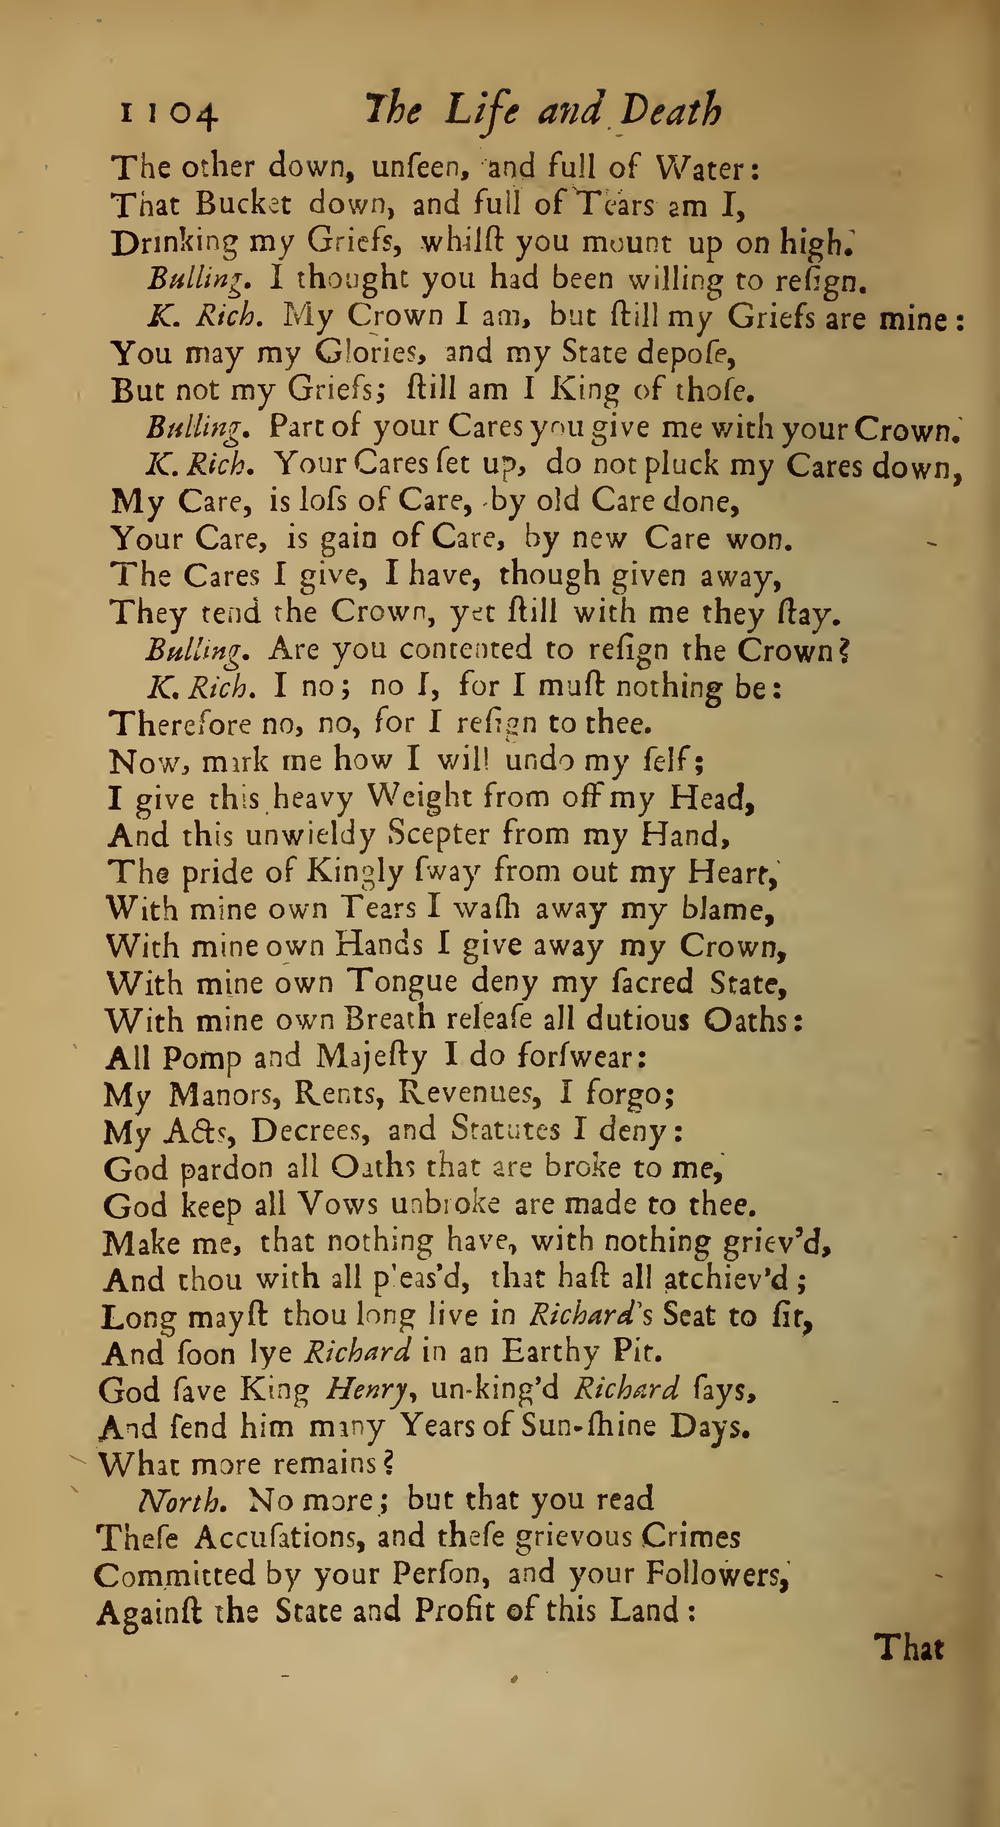 1104 The Life and Death
The other down, unſeen, and full of Water:
That Bucket down, and full of Tears am I,
Drinking my Griefs, whilſt you mount up on high.
Bulling. I thought you had been willing to reſign.
K. Rich. My Crown I am, but ſtill my Griefs are mine:
You may my Glories, and my State depoſe,
But not my Griefs; ſtill am I King of thoſe.
Bulling. Part of your Cares you give me with your Crown.
K. Rich. Your Cares ſet up, do not pluck my Cares down,
My Care, is loſs of Care, by old Care done,
Your Care, is gain of Care, by new Care won.
The Cares I give, I have, though given away,
They tend the Crown, yet ſtill with me they ſtay.
Bulling. Are you contented to reſign the Crown?
K. Rich. I no; no I, for I muſt nothing be:
Therefore no, no, for I reſign to thee.
Now, mark me how I will undo my ſelf;
I give this heavy Weight from off my Head,
And this unwieldy Scepter from my Hand,
The pride of Kingly ſway from out my Heart,
With mine own Tears I waſh away my blame,
With mine own Hands I give away my Crown,
With mine own Tongue deny my ſacred State,
With mine own Breath releaſe all dutious Oaths:
All Pomp and Majeſty I do forſwear:
My Manors, Rents, Revenues, I forgo;
My Acts, Decrees, and Statutes I deny:
God pardon all Oaths that are broke to me,
God keep all Vows unbroke are made to thee.
Make me, that nothing have, with nothing griev'd,
And thou with all pleas'd, that haſt all atchiev'd;
Long mayſt thou long live in Richard's Seat to ſit,
And ſoon lye Richard in an Earthy Pit.
God ſave King Henry, un-king'd Richard ſays,
And ſend him many Years of Sun-ſhine Days.
What more remains?
North. No more; but that you read
Theſe Accuſations, and theſe grievous Crimes
Committed by your Perſon, and your Followers,
Againſt the State and Profit of this Land:
That